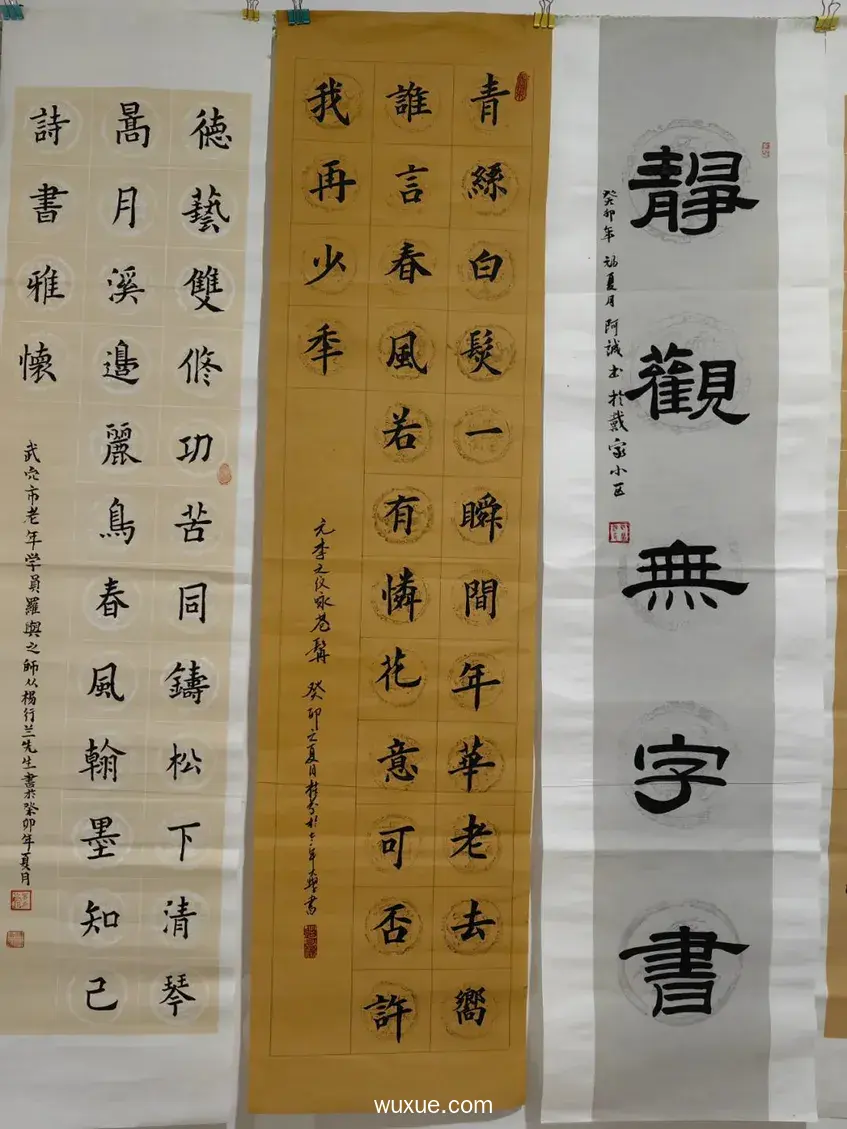 靜觀無字書
癸卯年 初夏月 阿誠书於戴家小区
青絲白髮一瞬間年華老去嚮
誰言春風若有憐花意可否許
我再少年
元李之仪咏老鬓 癸卯之夏月
德藝雙修功苦同鑄松下清琴
暠月溪邊麗鳥春風翰墨知己
詩書雅懷
武穴市老年学員羅與之師从楊行兰先生書於癸卯年夏月
wuxue.com